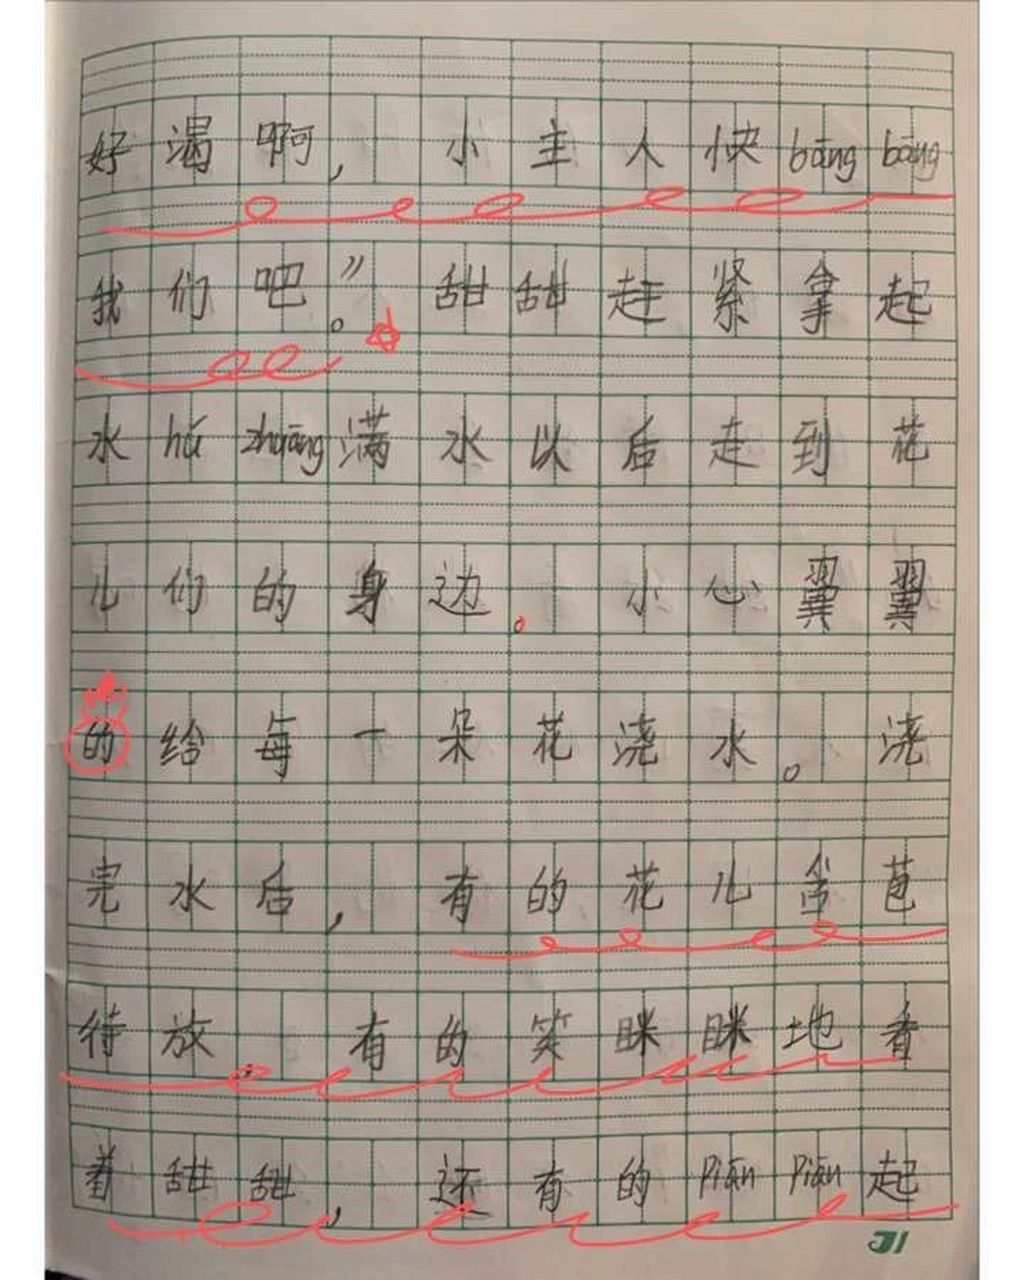 好渴啊，小主人快bāng bāng
我们吧。”甜甜赶紧拿起
水hú zhuāng满水以后走到花
儿们的身边。小心翼翼
的给每一朵花浇水。浇
完水后，有的花儿含苞
待放，有的笑眯眯地看
着甜甜，还有的piān piān起